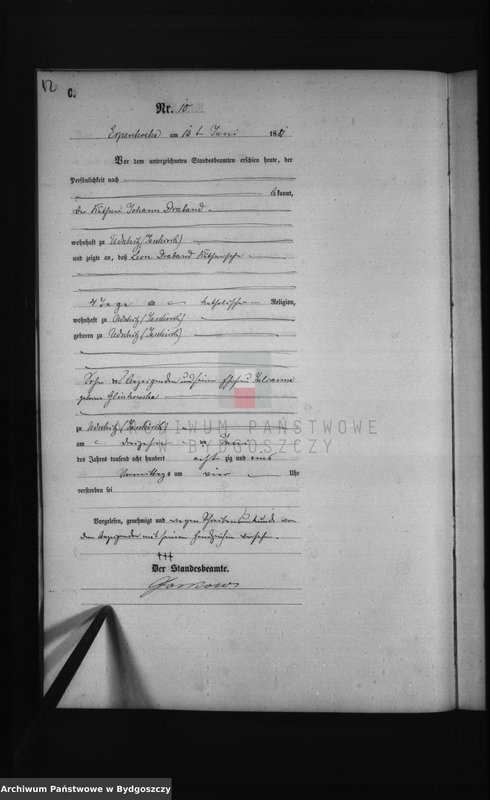 12
C.
Nr. 10
am 13 t Juni 1881
Vor dem unterzeichneten Standesbeamten erschien heute, der
Persönlichkeit nach
kannt,
der Johann Draband
wohnhaft zu
und zeigte an, daß Leon Draband
4 Tage alt katholischer Religion,
wohnhaft zu
geboren zu
Sohn des Anzeigenden und seiner Ehefrau Julianna
geborene Glinkowska
zu
am dreizehn ten Juni
des Jahres tausend acht hundert acht zig und eins
Vormittags um vier Uhr
verstorben sei
Vorgelesen, genehmigt und wegen Schreibensunkunde von
dem Anzeigenden mit seinem Handzeichen versehen.
+++
Der Standesbeamte.
ARCHIWUM PAŃSTWOWE
W BYDGOSZCZY
Archiwum Państwowe w Bydgoszczy